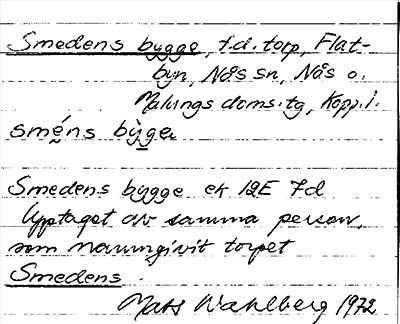 Smedens bygge, f.d. torp, Flat-
byn, Nås sn, Nås o.
Malungs doms.tg, Kopp.l.
smé̬ns by̆̀ge
Smedens bygge ek 12E 7d
Upptaget av samma person,
som namngivit torpet
Smedens.
Mats Wahlberg 1972